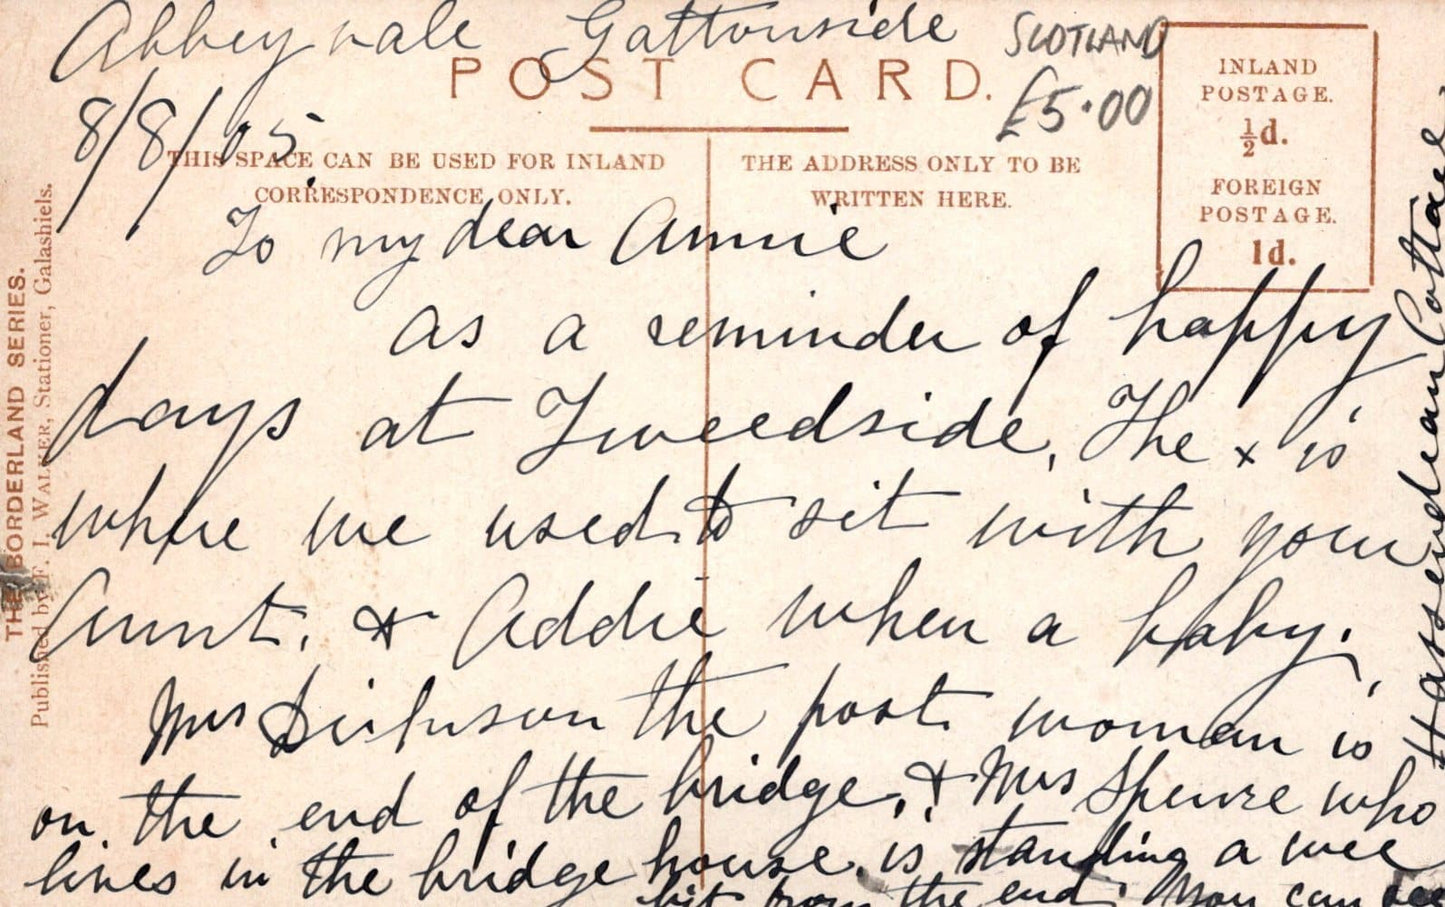 Abbeyvale Gattonside
SCOTLAND
£5.00
8/8/05
POST CARD.
THIS SPACE CAN BE USED FOR INLAND
CORRESPONDENCE ONLY.
THE ADDRESS ONLY TO BE
WRITTEN HERE.
INLAND
POSTAGE.
½d.
FOREIGN
POSTAGE.
1d.
To my dear Annie
as a reminder of happy
days at Tweedside. The x is
where we used to sit with your
Aunt. & Addie when a baby.
Mrs the post woman is
on the end of the bridge, & Mrs who
lives in the bridge house. is standing a wee
bit from the end. You can see
Hassendean Cottage
THE BORDERLAND SERIES.
Published by F. I. WALKER, Stationer, Galashiels.